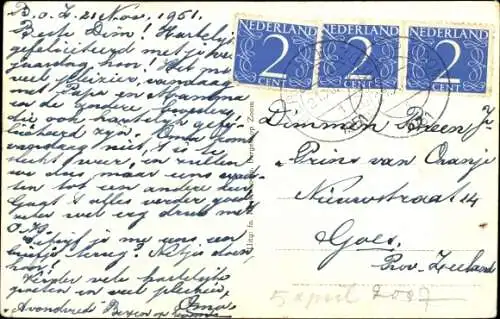 B. o. Z. 21 Nov. 1951.
Beste Dim! Hartelijk
gefeliciteerd met je ver-
jaardag hoor! Het
veel plezier, vandaag
met Papa en Mamma
en de
die ook hartelijk gefe-
liciteerd zijn. Oma komt
vandaag niet, 't is te
slecht weer, en zullen
we dus maar eens wach-
ten tot een andere keer.
Gaat 't alles verder goed
zeker wel erg druk met
Schrijf je me eens een
briefje terug? Netjes doen,
hoor!
Verder vele hartelijke
groeten en veel plezier,
Avondured Bergen op Zoom Oma
NEDERLAND
2
CENT
NEDERLAND
2
CENT
NEDERLAND
2
CENT
Dimmen Breen Jr
Prins van Oranje
Nieuwstraat 14
Goes.
Prov. Zeeland
5 april 2007